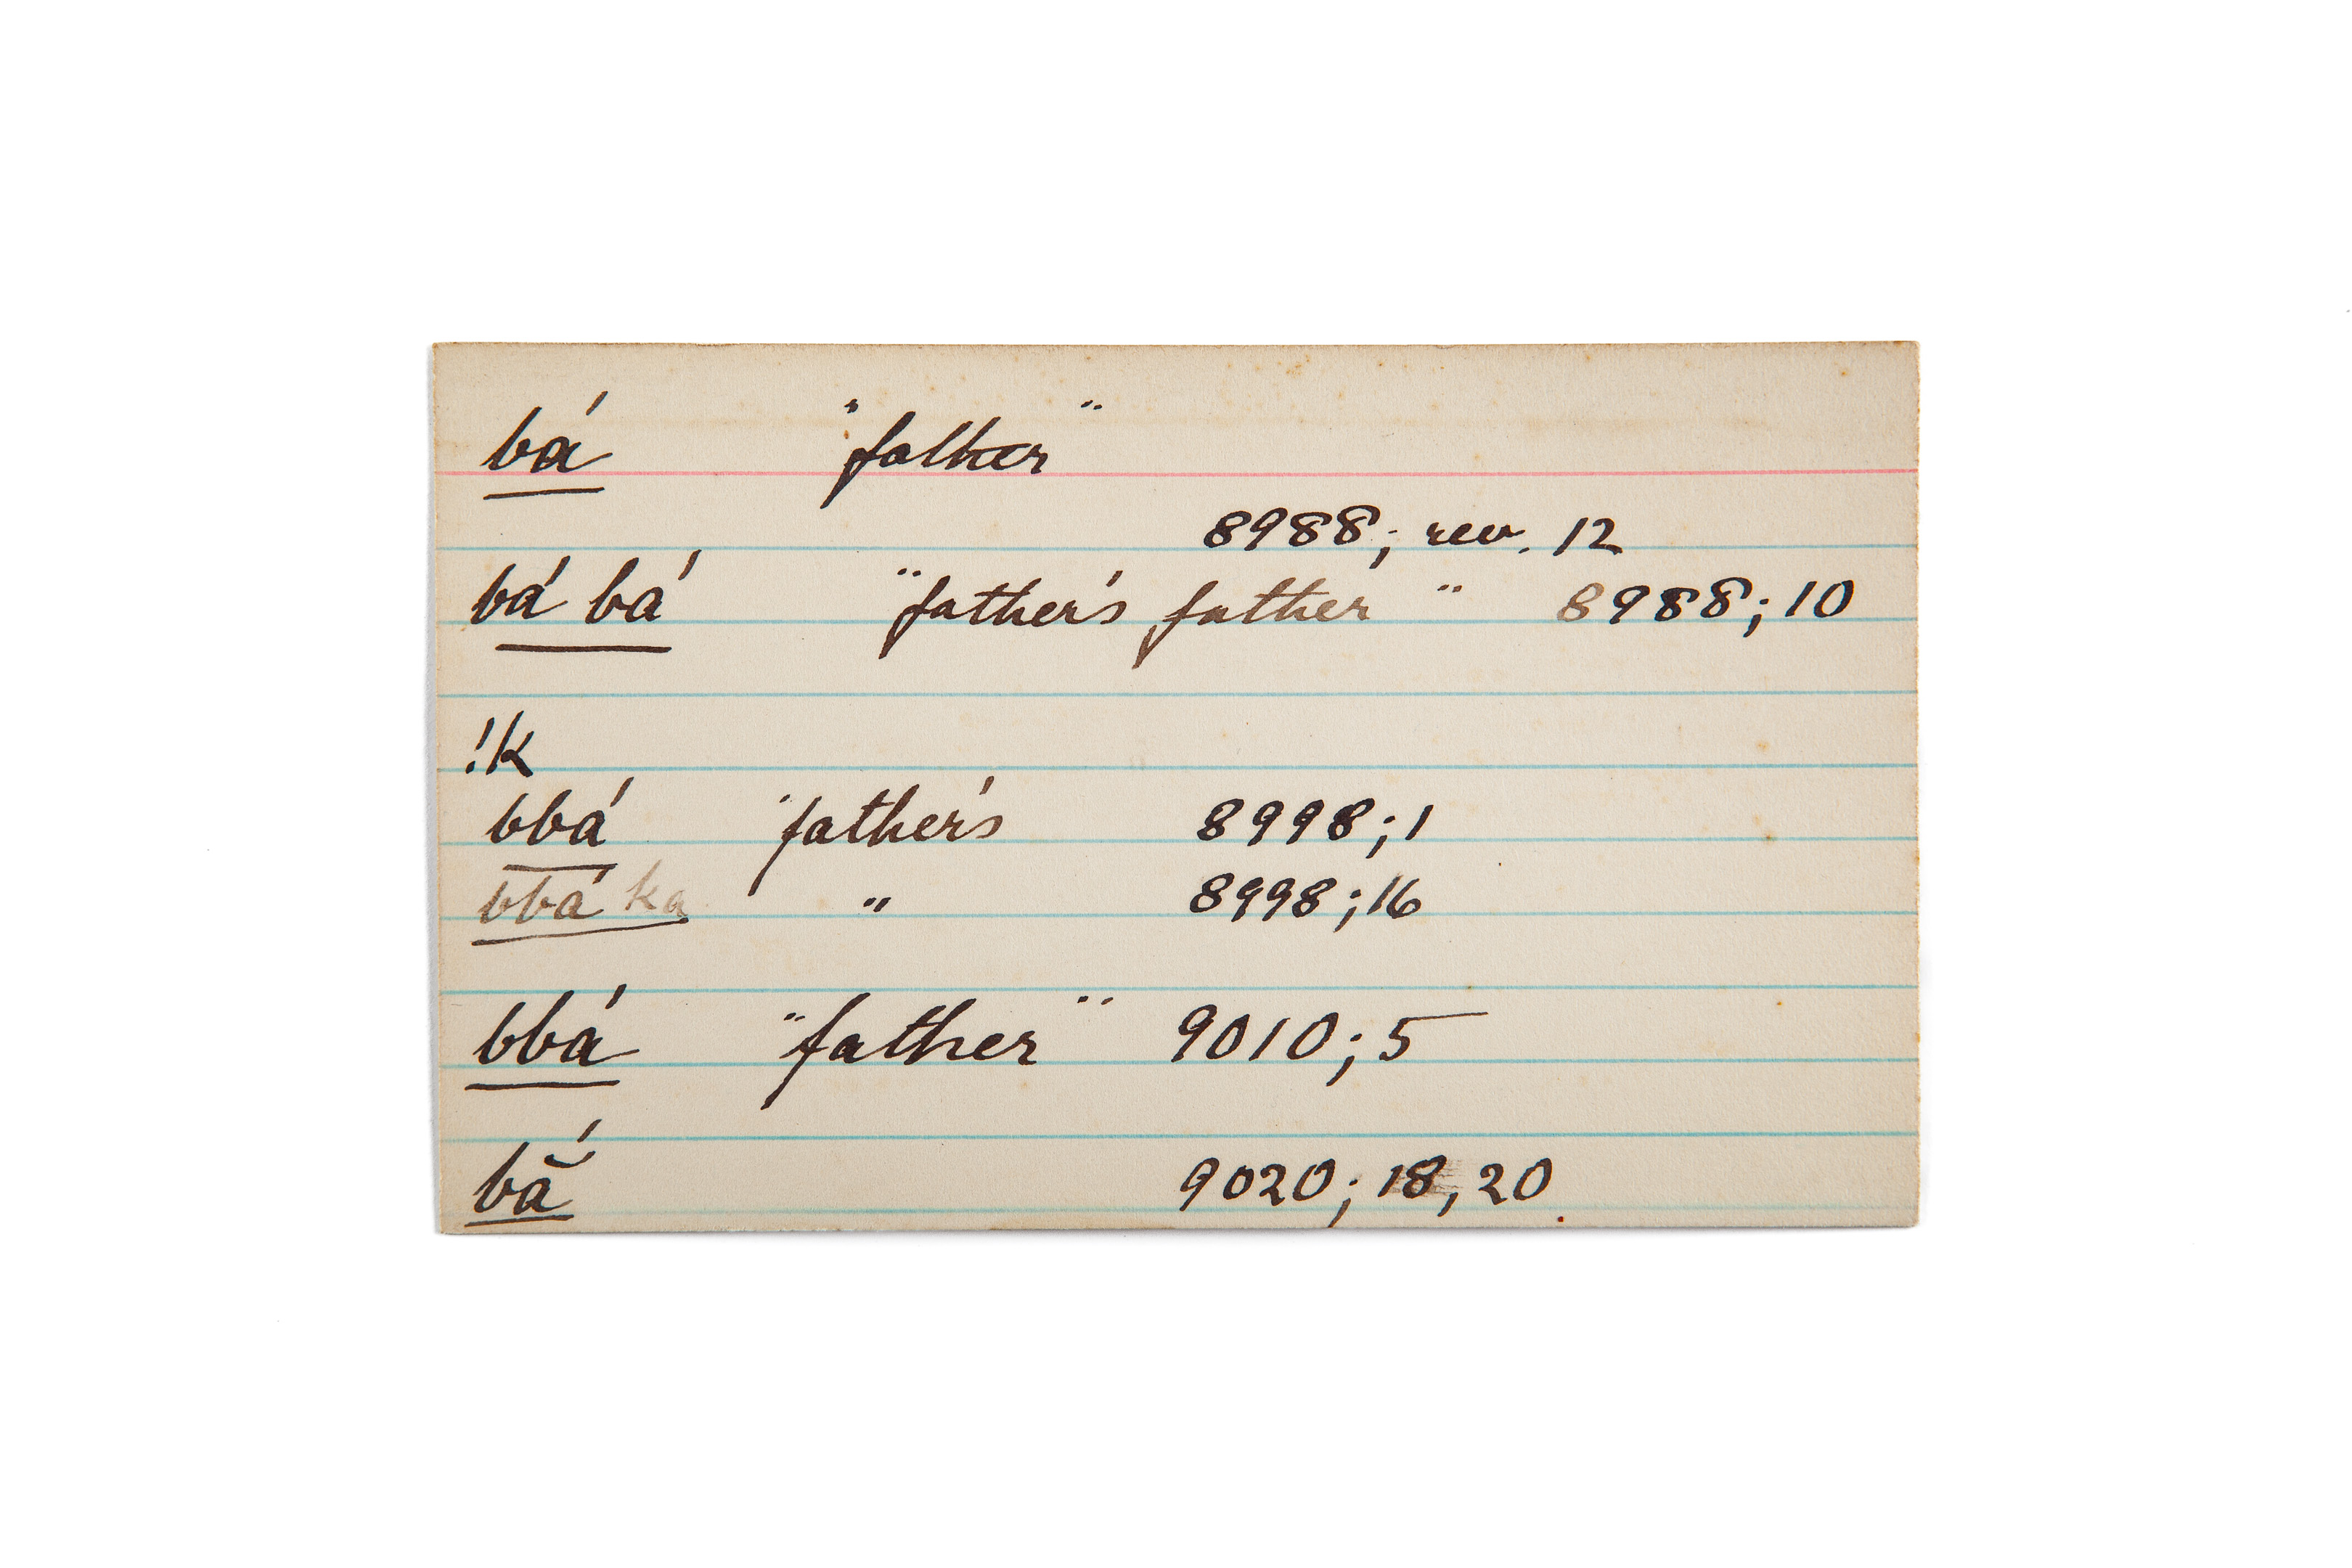 bá "father"
8988; rev. 12
bá bá "father's father" 8988; 10
!k
bbá "father's 8998; 1
bbá ka " 8998; 16
bbá "father" 9010; 5
bā̆́ 9020; 18, 20